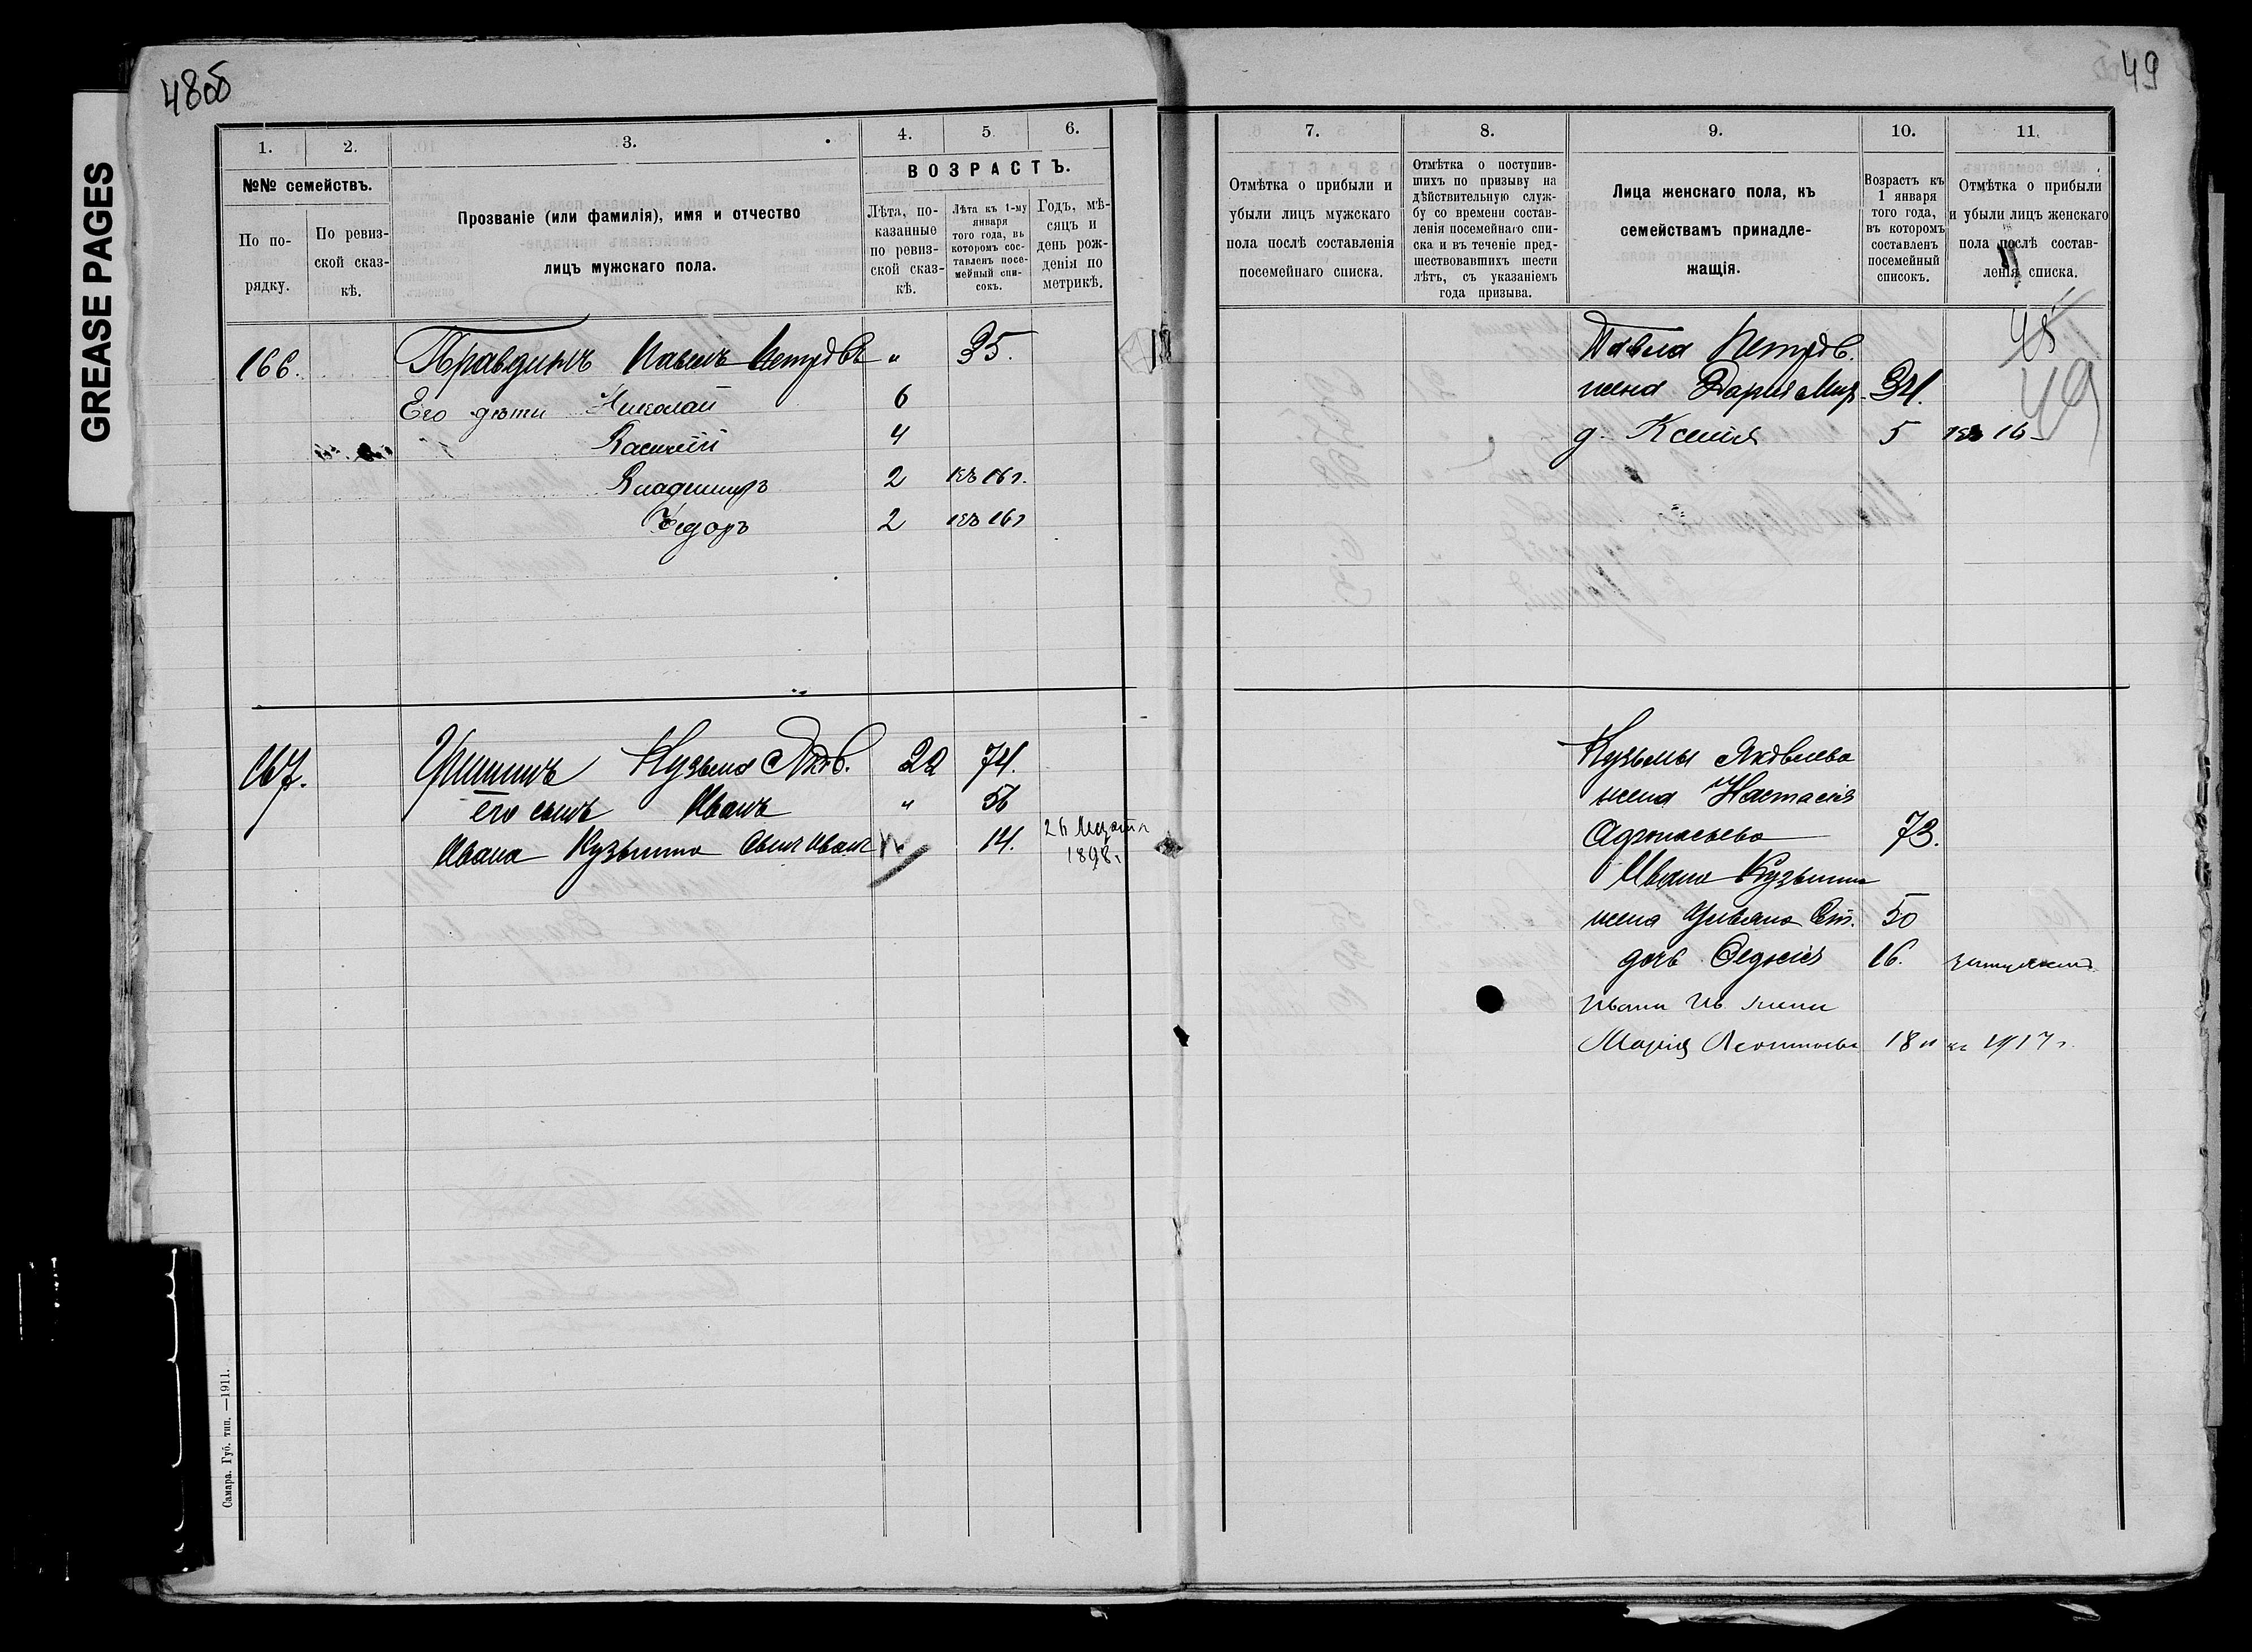 48об
49
GREASE PAGES
1. 2. 3. 4. 5. 6.
№№ семействъ.
По по-
рядку.
По ревиз-
ской сказ-
кѣ.
Прозваніе (или фамилія), имя и отчество
лицъ мужскаго пола.
ВОЗРАСТЪ.
Лѣта, по-
казанные
по ревиз-
ской сказ-
кѣ.
Лѣта къ 1-му
января
того года, въ
которомъ сос-
тавленъ посе-
мейный спи-
сокъ.
Годъ, мѣ-
сяцъ и
день рож-
денія по
метрикѣ.
166. Правдинъ Павелъ Петровъ „ 35.
Его дѣти Николай 6
Василій 4
Владимиръ 2 къ 16 г.
Ѳедоръ 2 къ 16 г
167. Кузьма Яков. 22 74.
его сынъ Иванъ „ 56
Ивана Кузьмина сынъ Иванъ 14. 26 Марта
1898 г.
Самара. Губ. тип. —1911.
7. 8. 9. 10. 11.
Отмѣтка о прибыли и
убыли лицъ мужскаго
пола послѣ составленія
посемейнаго списка.
Отмѣтка о поступив-
шихъ по призыву на
дѣйствительную служ-
бу со времени состав-
ленія посемейнаго спи-
ска и въ теченіе пред-
шествовавшихъ шести
лѣтъ, съ указаніемъ
года призыва.
Лица женскаго пола, къ
семействамъ принадле-
жащія.
Возрастъ къ
1 января
того года,
въ которомъ
составленъ
посемейный
списокъ.
Отмѣтка о прибыли
и убыли лицъ женскаго
пола послѣ состав-
ленія списка.
49
Павла Петров.
жена Дарья Мир. 34.
д. Ксенія 5 къ 16
Кузьмы Яковлева
жена Настасія
Афонасьева 73.
Ивана Кузьмина
жена Ульяна Ст. 50
дочь Федосія 16. замужемъ
Ивана Ив. жена
Марія Леонтьева 18 л къ 1917 г.